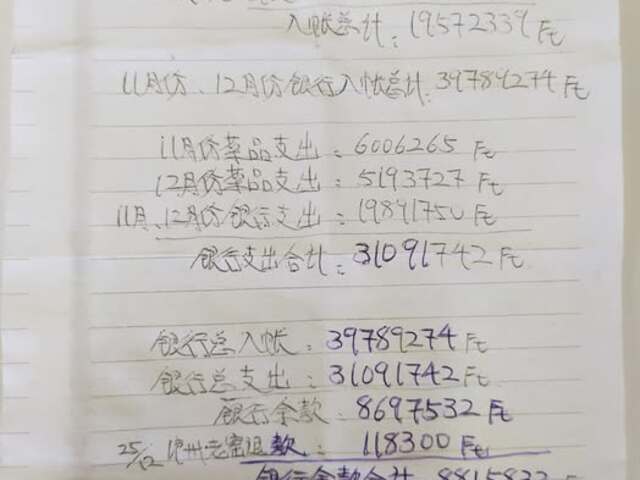 入帐总计：19572339 Ft
11月份、12月份银行入帐总计：39789274 Ft
11月份药品支出：6006265 Ft
12月份药品支出：5193727 Ft
11月、12月份银行支出：19891750 Ft
银行支出合计：31091742 Ft
银行总入帐：39789274 Ft
银行总支出：31091742 Ft
银行余款：8697532 Ft
25/12 款：118300 Ft
银行余款合计 8815832 Ft